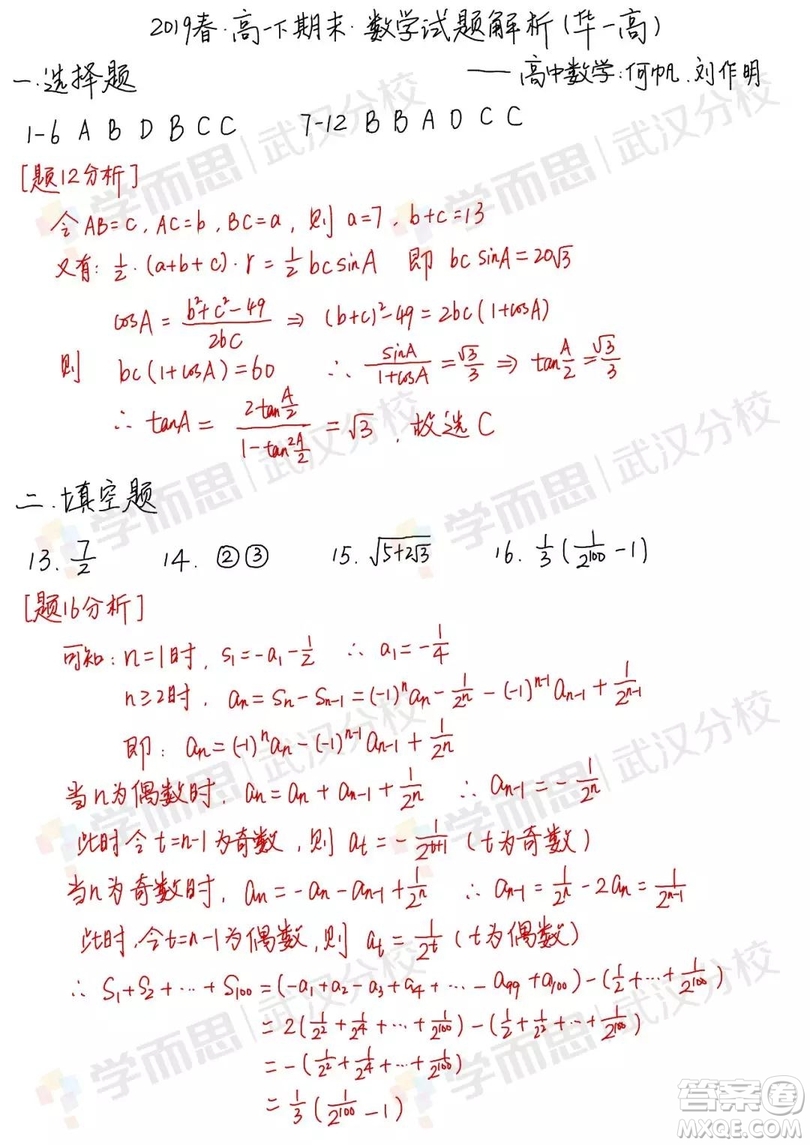 2019春·高一下期末·数学试题解析(华一高)
一.选择题
——高中数学:何帆.刘作明
1-6 A B D B C C 7-12 B B A D C C
[题12分析]
令AB=c, AC=b, BC=a, 则 a=7, b+c=13
又有: ½·(a+b+c)·r=½bcsinA 即 bcsinA=20√3
cosA=(b²+c²-49)/(2bc) ⇒ (b+c)²-49=2bc(1+cosA)
则 bc(1+cosA)=60 ∴ sinA/(1+cosA)=√3/3 ⇒ tan(A/2)=√3/3
∴ tanA=(2tan(A/2))/(1-tan²(A/2))=√3, 故选C
二.填空题
13. 7/2 14. ②③ 15. √(5+2√3) 16. 1/3(1/2¹⁰⁰-1)
[题16分析]
可知: n=1时, S₁=-a₁-1/2 ∴ a₁=-1/4
n≥2时, aₙ=Sₙ-Sₙ₋₁=(-1)ⁿaₙ-1/2ⁿ-(-1)ⁿ⁻¹aₙ₋₁+1/2ⁿ⁻¹
即: aₙ=(-1)ⁿaₙ-(-1)ⁿ⁻¹aₙ₋₁+1/2ⁿ
当n为偶数时, aₙ=aₙ+aₙ₋₁+1/2ⁿ ∴ aₙ₋₁=-1/2ⁿ
此时令t=n-1为奇数, 则 aₜ=-1/2ᵗ⁺¹ (t为奇数)
当n为奇数时, aₙ=-aₙ-aₙ₋₁+1/2ⁿ ∴ aₙ₋₁=1/2ⁿ-2aₙ=1/2ⁿ⁻¹
此时,令t=n-1为偶数,则 aₜ=1/2ᵗ (t为偶数)
∴ S₁+S₂+···+S₁₀₀=(-a₁+a₂-a₃+a₄+···-a₉₉+a₁₀₀)-(1/2+···+1/2¹⁰⁰)
=2(1/2²+1/2⁴+···+1/2¹⁰⁰)-(1/2+1/2²+···+1/2¹⁰⁰)
=-(1/2²+1/2⁴+···+1/2¹⁰⁰)
=1/3(1/2¹⁰⁰-1)
学而思 武汉分校
答案圈
MXQE.COM